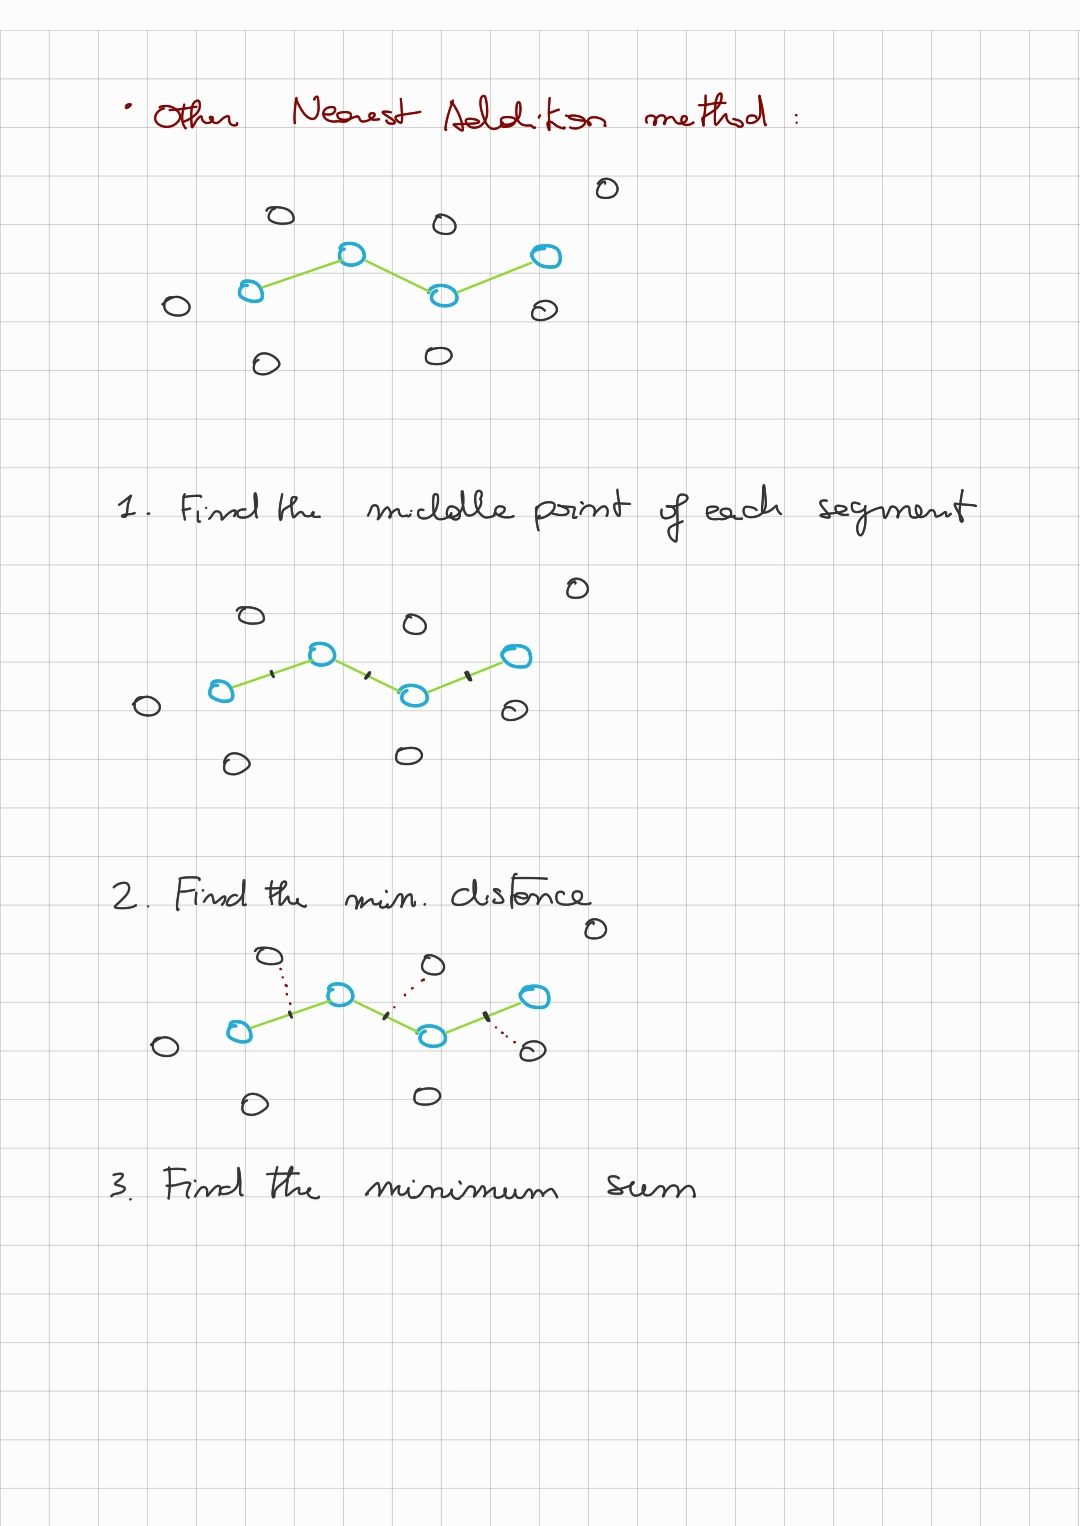 • Other Nearest Addition method :
1. Find the middle point of each segment
2. Find the min. distance
3. Find the minimum sum